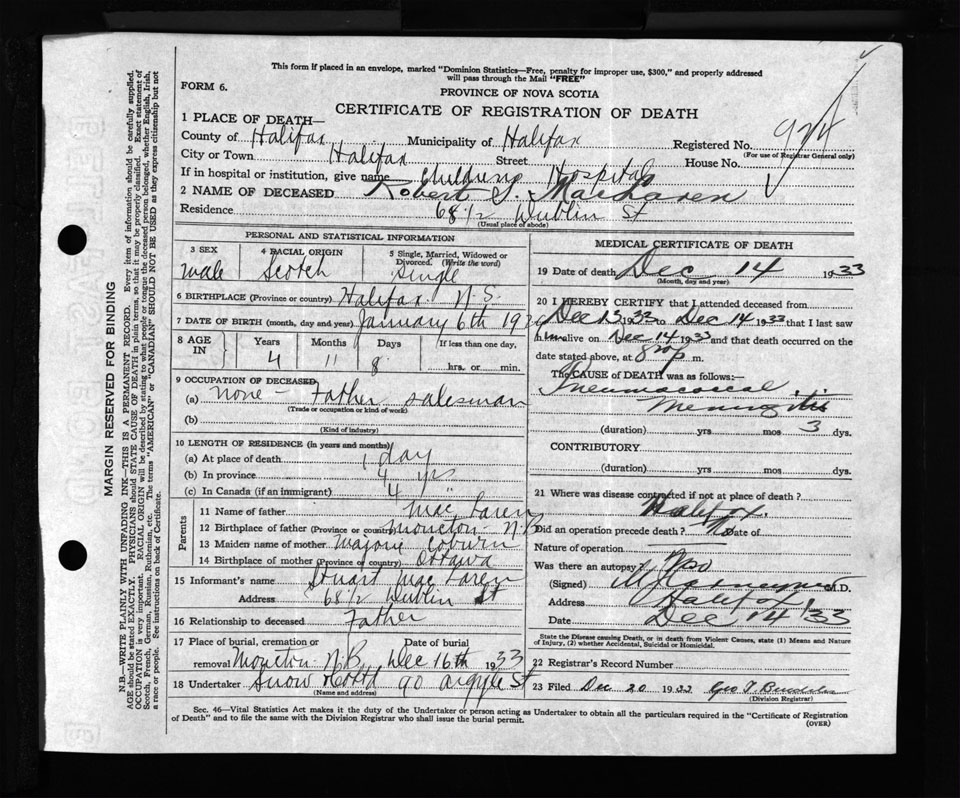 This form if placed in an envelope, marked "Dominion Statistics—Free, penalty for improper use, $300," and properly addressed
will pass through the Mail "FREE"
FORM 6.
PROVINCE OF NOVA SCOTIA
CERTIFICATE OF REGISTRATION OF DEATH
924
1 PLACE OF DEATH—
County of Halifax Municipality of Halifax Registered No.
(For use of Registrar General only)
City or Town Halifax Street House No.
If in hospital or institution, give name Childrens Hospital
2 NAME OF DECEASED Robert S. MacLaren
Residence 68 1/2 Dublin St
(Usual place of abode)
PERSONAL AND STATISTICAL INFORMATION
3 SEX 4 RACIAL ORIGIN 5 Single, Married, Widowed or
Divorced. (Write the word)
male Scotch single
6 BIRTHPLACE (Province or country) Halifax N.S.
7 DATE OF BIRTH (month, day and year) January 6th 192
8 AGE IN Years Months Days If less than one day,
4 11 8 hrs. or min.
9 OCCUPATION OF DECEASED
(a) none - Father salesman
(Trade or occupation or kind of work)
(b)
(Kind of industry)
10 LENGTH OF RESIDENCE (in years and months)
(a) At place of death 1 day
(b) In province 4 yrs
(c) In Canada (if an immigrant) 4
Parents
11 Name of father Mac Laren
12 Birthplace of father (Province or country) Moncton - N.B
13 Maiden name of mother Marjorie Coburn
14 Birthplace of mother (Province or country) Ottawa
15 Informant's name Stuart Mac Laren
Address 68 1/2 Dublin St
16 Relationship to deceased Father
17 Place of burial, cremation or Date of burial
removal Moncton N.B, Dec 16th 1933
18 Undertaker Snow & Co Ltd 90 Argyle St
(Name and address)
MEDICAL CERTIFICATE OF DEATH
19 Date of death Dec 14 1933
(Month, day and year)
20 I HEREBY CERTIFY that I attended deceased from
Dec 13 1933 to Dec 14 1933 that I last saw
him alive on Dec 14 1933 and that death occurred on the
date stated above, at 8 30 p m.
The CAUSE OF DEATH was as follows:—
Pneumococcal
Meningitis
(duration) yrs mos 3 dys.
CONTRIBUTORY
(duration) yrs. mos dys.
21 Where was disease contracted if not at place of death ?
Halifax.
Did an operation precede death ? No Date of
Nature of operation
Was there an autopsy? No
(Signed) M.D.
Address Halifax
Date Dec 14 '33
State the Disease causing Death, or in death from Violent Causes, state (1) Means and Nature
of Injury, (2) whether Accidental, Suicidal or Homicidal.
22 Registrar's Record Number
23 Filed Dec 20 1933 Geo T.
(Division Registrar)
Sec. 46—Vital Statistics Act makes it the duty of the Undertaker or person acting as Undertaker to obtain all the particulars required in the "Certificate of Registration
of Death" and to file the same with the Division Registrar who shall issue the burial permit.
(OVER)
MARGIN RESERVED FOR BINDING
N.B.—WRITE PLAINLY WITH UNFADING INK—THIS IS A PERMANENT RECORD. Every item of information should be carefully supplied.
AGE should be stated EXACTLY. PHYSICIANS should STATE CAUSE OF DEATH in plain terms, so that it may be properly classified. Exact statement of
OCCUPATION is very important. RACIAL ORIGIN will be described by stating to what people or tongue the deceased person belonged, whether English, Irish,
Scotch, French, German, Russian, Ruthenian, etc. The terms "AMERICAN" or "CANADIAN" SHOULD NOT BE USED as they express citizenship but not
a race or people. See instructions on back of Certificate.